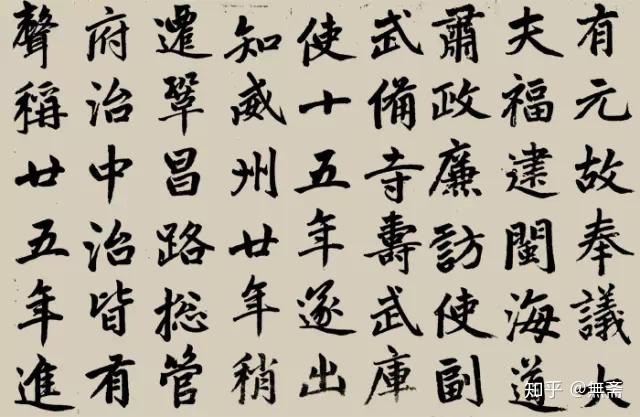 有元故奉議大
夫福建閩海道
肅政廉訪使副
武備寺壽武庫
使十五年遂出
知威州廿年稍
遷鞏昌路総管
府治中治皆有
聲稱廿五年進
知乎 @無斋